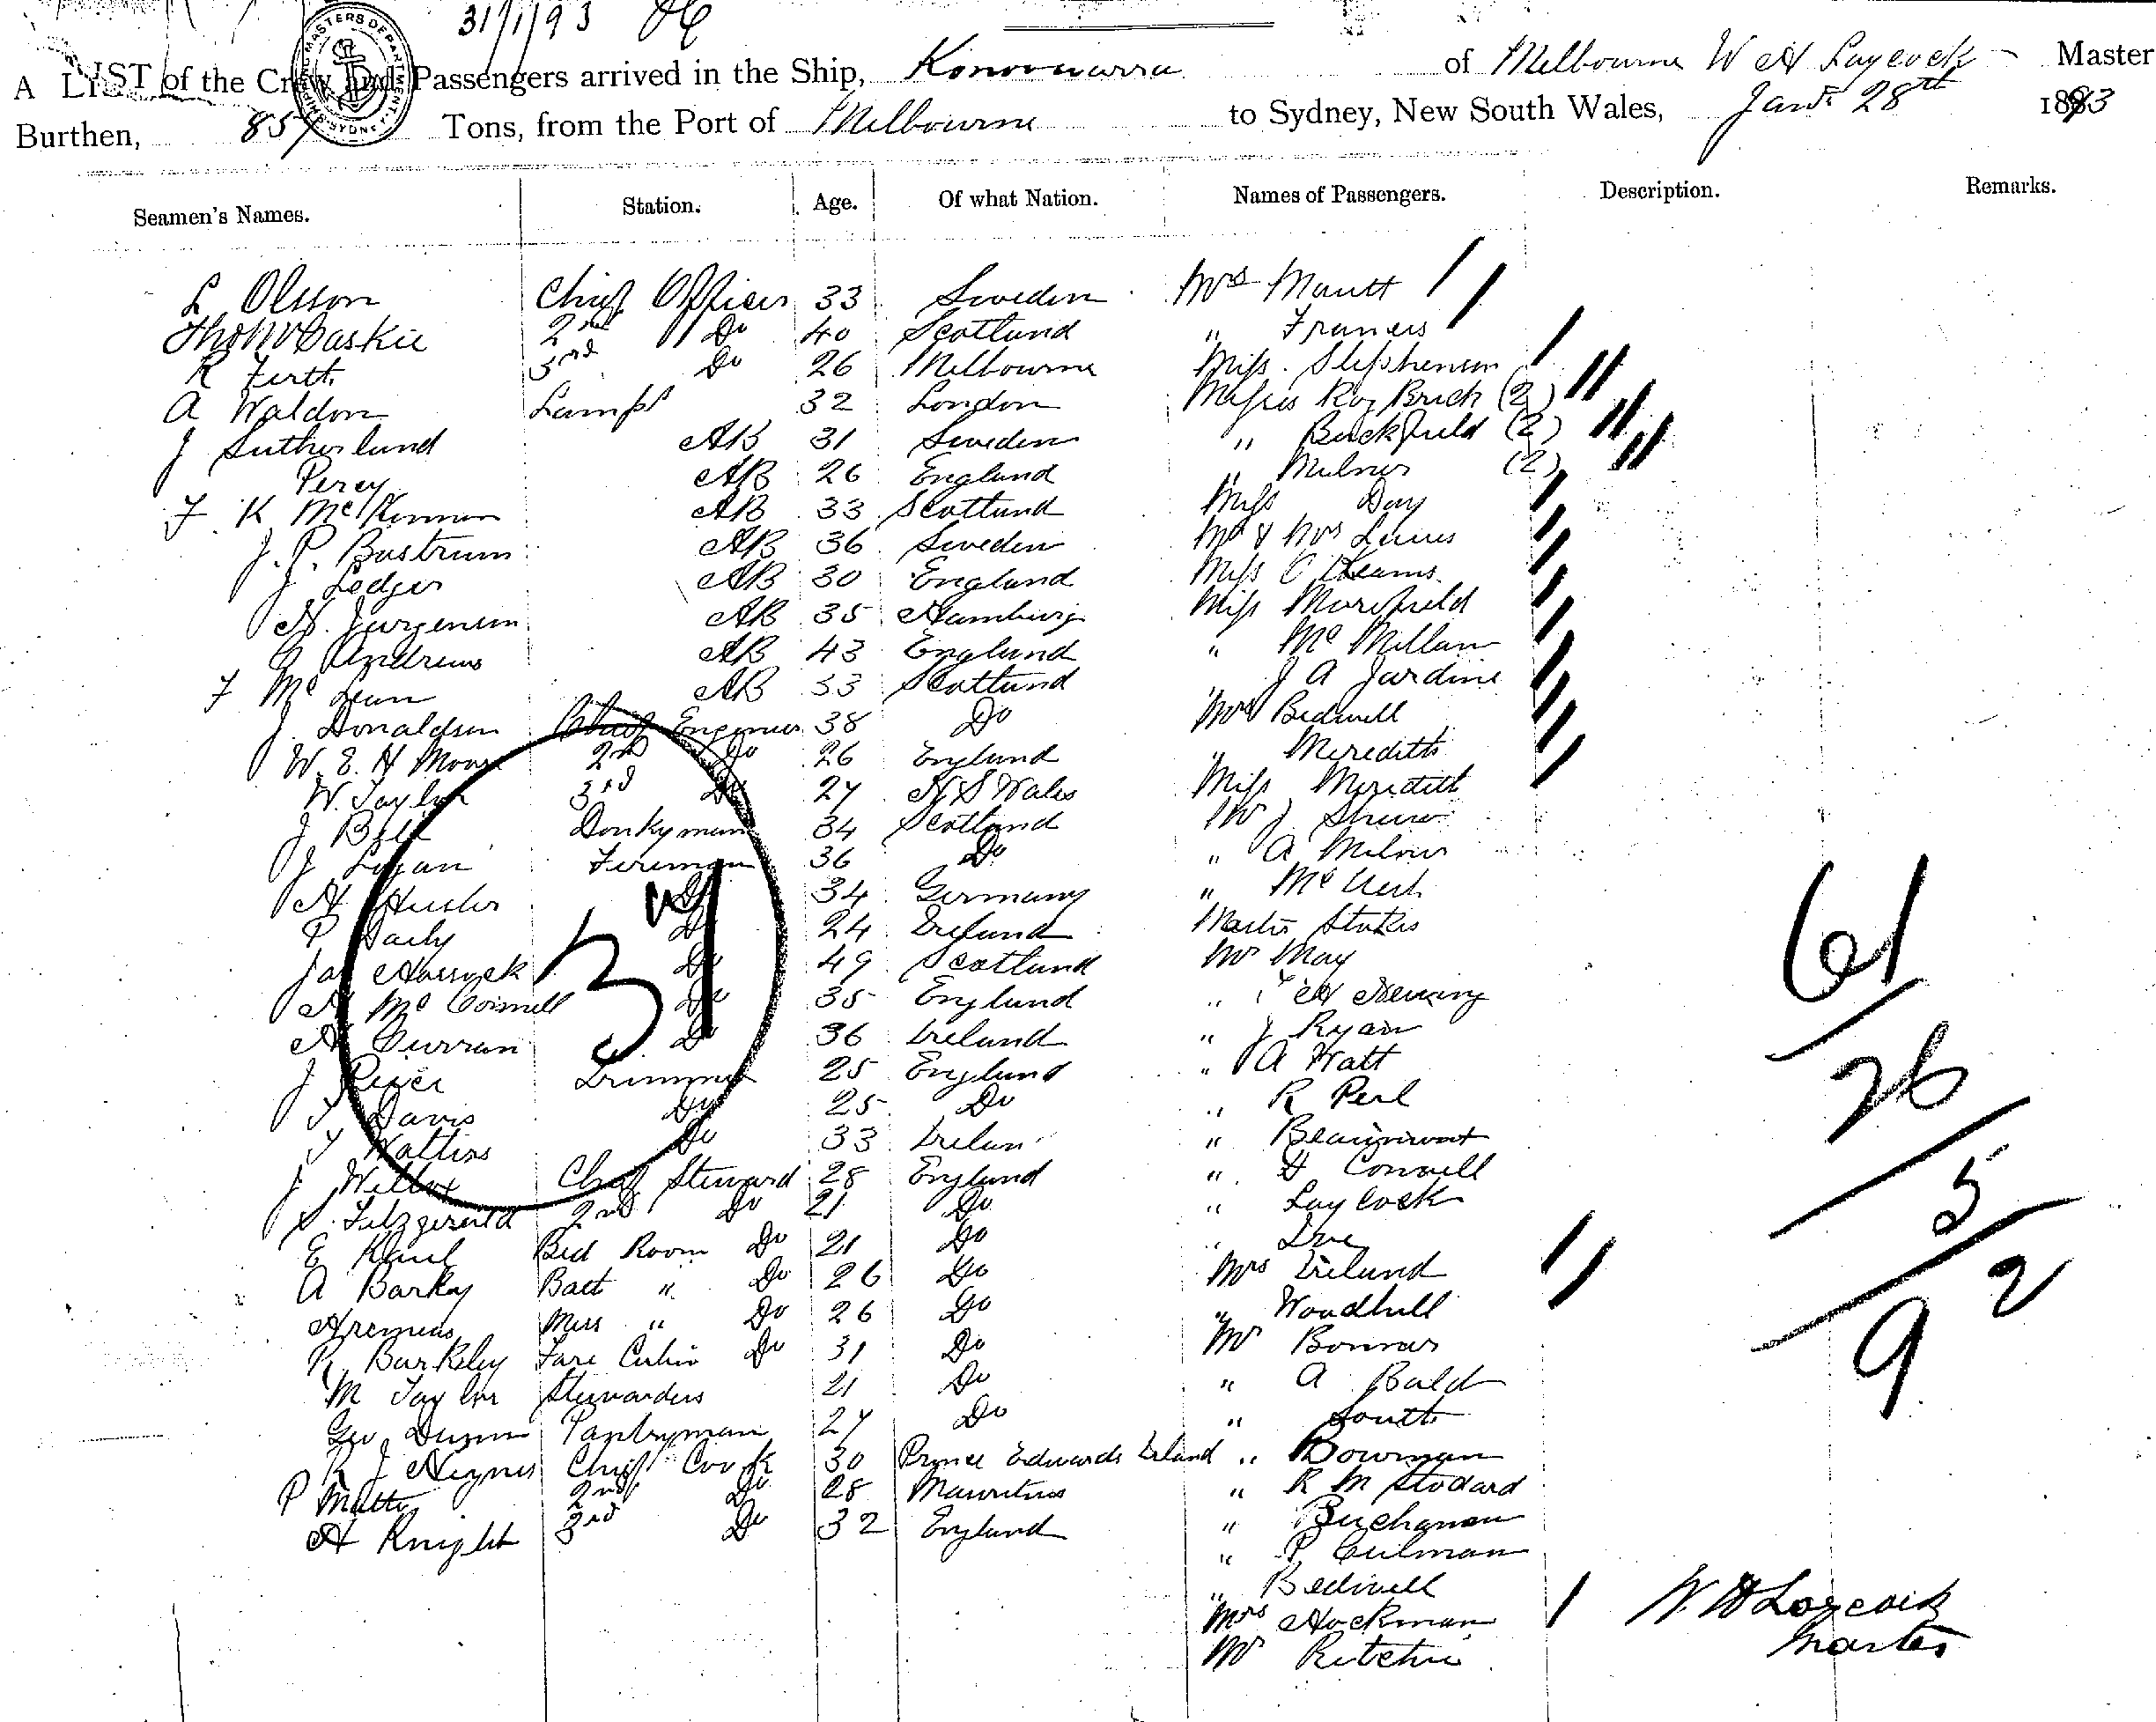 31/1/93
SHIPPING MASTERS DEPARTMENT SYDNEY
A LIST of the Crew and Passengers arrived in the Ship, Konoowarra of Melbourne W H Laycock Master
Burthen, 857 Tons, from the Port of Melbourne to Sydney, New South Wales, Jany 28th 1893
Seamen's Names. Station. Age. Of what Nation. Names of Passengers. Description. Remarks.
L Olsson Chief Officer 33 Sweden Mrs Mautt
Thos McCaskie 2nd Do 40 Scotland " Francis
R Firth 3rd Do 26 Melbourne Miss Stephenson
A Waldon Lamps 32 London Misses Brich (2)
J Sutherland AB 31 Sweden " Buckfield (2)
Percy AB 26 England " Milner (2)
F K McKinnon AB 33 Scotland Miss Day
J. P. Bustrum AB 36 Sweden Mr & Mrs
J Ledger AB 30 England Miss
H. Jurgensen AB 35 Hamburg Miss Marifield
G Andrews AB 43 England " McMillan
F McLean AB 33 Scotland " J A Jardine
J. Donaldson Chief Engineer 38 Do Mrs Bedwell
W. E. H Moore 2nd Do 26 England " Meredith
W. Taylor 3rd Do 27 N S Wales Miss Meredith
J Bell Donkyman 34 Scotland Mr J Shaw
J Logan Fireman 36 Do " A Milner
H Do 34 Germany " Mc
P Daily Do 24 Ireland Master Stokes
Jas Do 49 Scotland Mr May
H McConnell Do 35 England "
H Curran Do 36 Ireland " J Ryan
J Trimmer 25 England " A Watt
T Davis Do 25 Do " R Perl
T Do 33 Irelan " Beaumont
J Wilcox Chief Steward 28 England " H Connell
S. Fitzgerald 2nd Do 21 Do " Laycock
E Bed Room Do 21 Do "
A Barky Bath " Do 26 Do Mrs Ireland
Mess " Do 26 Do " Woodhill
R. Barkeley Fore Cabin Do 31 Do Mr Bonnar
M Taylor Stewardess 21 Do " A Bald
Geo Dunn Pantryman 27 Do " South
R J Chief Cook 30 Prince Edwards Island " Bowman
P 2nd Do 28 Mauritius " R M Stodard
H Knight 3rd Do 32 England " Buchanan
" P Culman
" Bedwell
Mrs Hockman
Mr Ritchie
31
61
26
5
2
9
W. H Laycock
Master